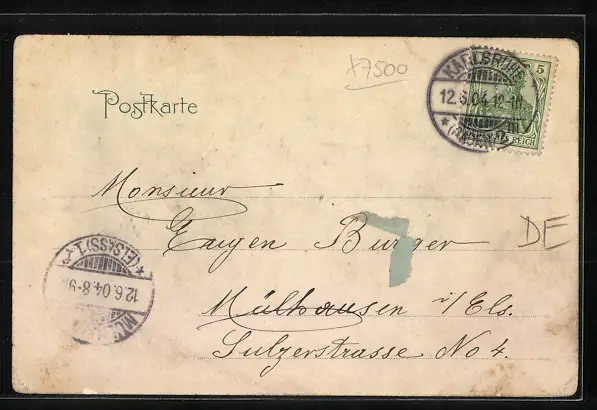 x7500
KARLSRUHE
5
12.6.04.12-1N
(BADEN)
REICH
Postkarte
Monsieur
Eugen Burger
DE
(ELSASS) 1.
12.6.04.8-9
MÜL
Mülhausen i/Els.
Sulzerstrasse No 4.